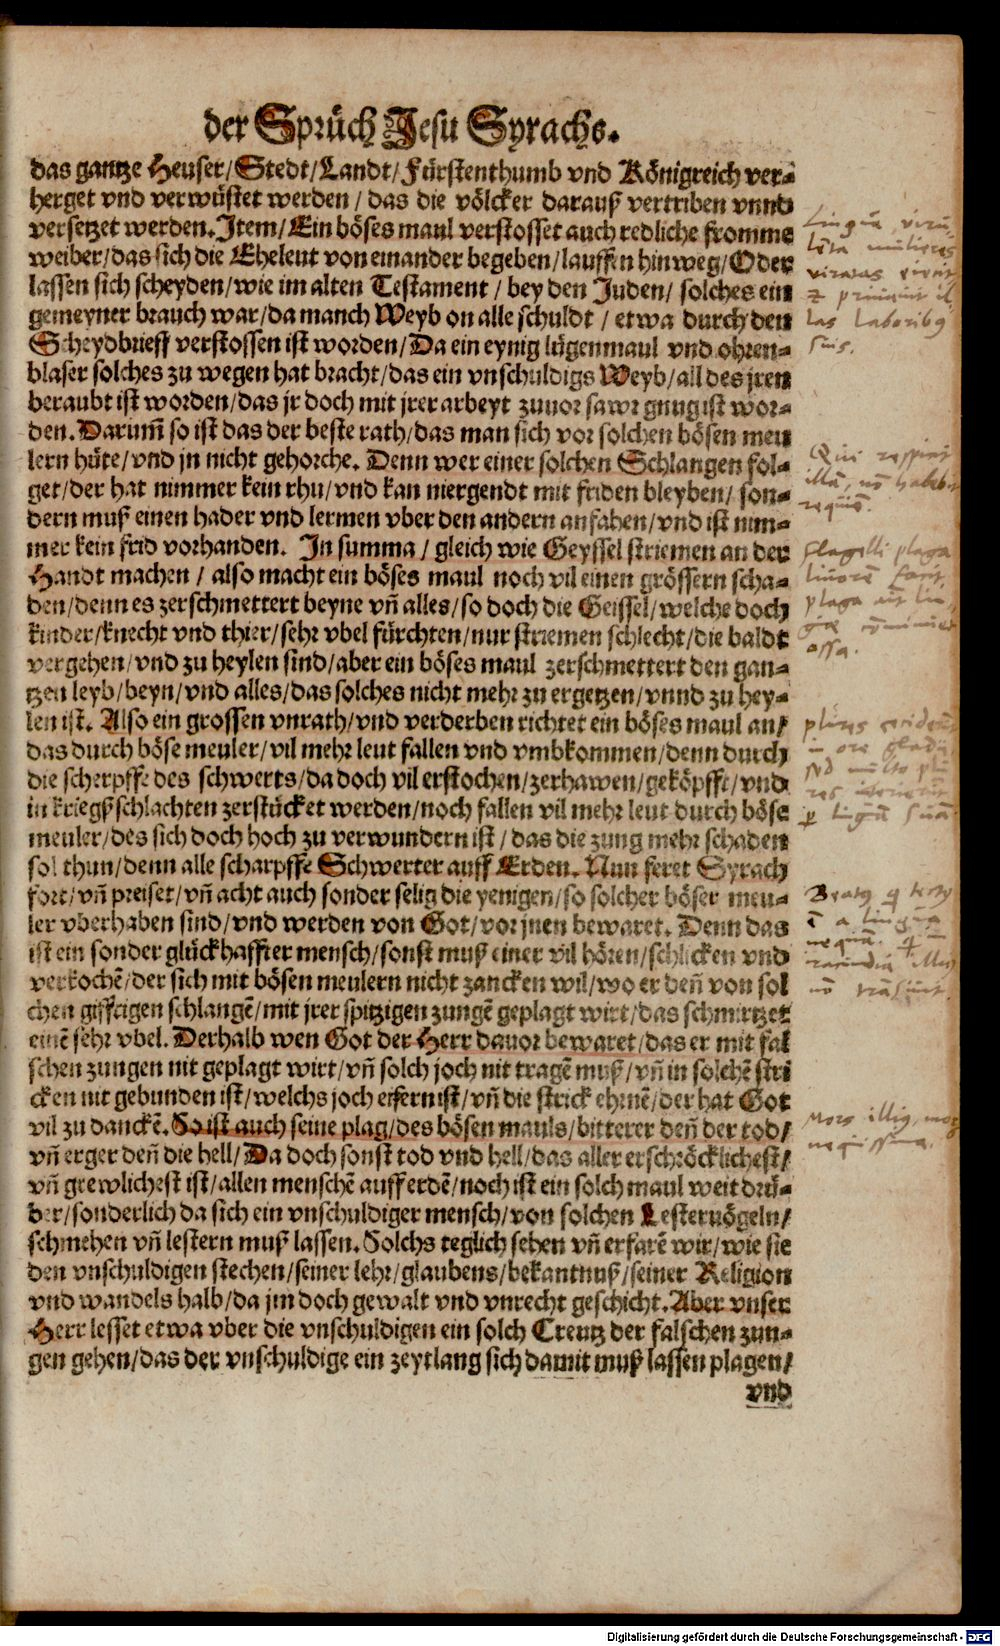 der Sprüch Jesu Syrachs.
das gantze Heuser/Stedt/Landt/Fürstenthumb vnd Königreich ver-
herget vnd verwüstet werden / das die völcker darauß vertriben vnnd
versetzet werden. Item/Ein böses maul verstosset auch redliche fromme
weiber/das sich die Eheleut von einander begeben/lauffen hinweg/Oder
lassen sich scheyden/wie im alten Testament / bey den Juden/ solches ein
gemeyner brauch war/da manch Weyb on alle schuldt / etwa durch den
Scheydbrieff verstossen ist worden/Da ein eynig lügenmaul vnd ohren-
blaser solches zu wegen hat bracht/das ein vnschuldigs Weyb/all des jren
beraubt ist worden/das jr doch mit jrer arbeyt zuuor sawr gnug ist wor-
den. Darum̄ so ist das der beste rath/das man sich vor solchen bösen meu
lern hüte/vnd jn nicht gehorche. Denn wer einer solchen Schlangen fol-
get/der hat nimmer kein rhu/vnd kan niergendt mit friden bleyben/ son-
dern muß einen hader vnd lermen vber den andern anfahen/vnd ist nim-
mer kein frid vorhanden. In summa / gleich wie Geyssel striemen an der
Handt machen / also macht ein böses maul noch vil einen grössern scha-
den/denn es zerschmettert beyne vn̄ alles/so doch die Geissel/welche doch
kinder/knecht vnd thier/sehr vbel fürchten/nur striemen schlecht/die baldt
vergehen/vnd zu heylen sind/aber ein böses maul zerschmettert den gan-
tzen leyb/beyn/vnd alles/das solches nicht mehr zu ergetzen/vnnd zu hey-
len ist. Also ein grossen vnrath/vnd verderben richtet ein böses maul an/
das durch böse meuler/vil mehr leut fallen vnd vmbkommen/denn durch
die scherpffe des schwerts/da doch vil erstochen/zerhawen/geköpfft/vnd
in kriegßschlachten zerstücket werden/noch fallen vil mehr leut durch böse
meuler/des sich doch hoch zu verwundern ist / das die zung mehr schaden
sol thun/denn alle scharpffe Schwerter auff Erden. Nun feret Syrach
fort/vn̄ preiset/vn̄ acht auch sonder selig die yenigen/so solcher böser meu-
ler vberhaben sind/vnd werden von Got/vor jnen bewaret. Denn das
ist ein sonder glückhaffter mensch/sonst muß einer vil hören/schlicken vnd
verkochē/der sich mit bösen meulern nicht zancken wil/wo er den̄ von sol
chen gifftigen schlangē/mit jrer spitzigen zungē geplagt wirt/das schmirtzet
einē sehr vbel. Derhalb wen Got der Herr dauor bewaret/das er mit fal
schen zungen nit geplagt wirt/vn̄ solch joch nit tragē muß/vn̄ in solchē stri
cken nit gebunden ist/welchs joch eisern ist/vn̄ die strick ehrnē/der hat Got
vil zu danckē. So ist auch seine plag/des bösen mauls/bitterer den̄ der tod/
vn̄ erger den̄ die hell/Da doch sonst tod vnd hell/das aller erschröcklichest/
vn̄ grewlichest ist/allen menschē auff erdē/noch ist ein solch maul weit drü-
ber/sonderlich da sich ein vnschuldiger mensch/von solchen Lesteruögeln/
schmehen vn̄ lestern muß lassen. Solchs teglich sehen vn̄ erfarē wir/wie sie
den vnschuldigen stechen/seiner lehr/glaubens/bekantnuß/seiner Religion
vnd wandels halb/da jm doch gewalt vnd vnrecht geschicht. Aber vnser
Herr lesset etwa vber die vnschuldigen ein solch Creutz der falschen zun-
gen gehen/das der vnschuldige ein zeytlang sich damit muß lassen plagen/
vnd
las laboribg
suis.
Qui respicit
illā, nō habebit
requiē.
flagelli plaga
liuorē facit,
plaga
ossa.
plures
in ore gladii
sed multo
p linguā suā.
a lingua
nequā.
nō
Mors illig, mors
nequissima.
Digitalisierung gefördert durch die Deutsche Forschungsgemeinschaft - DFG